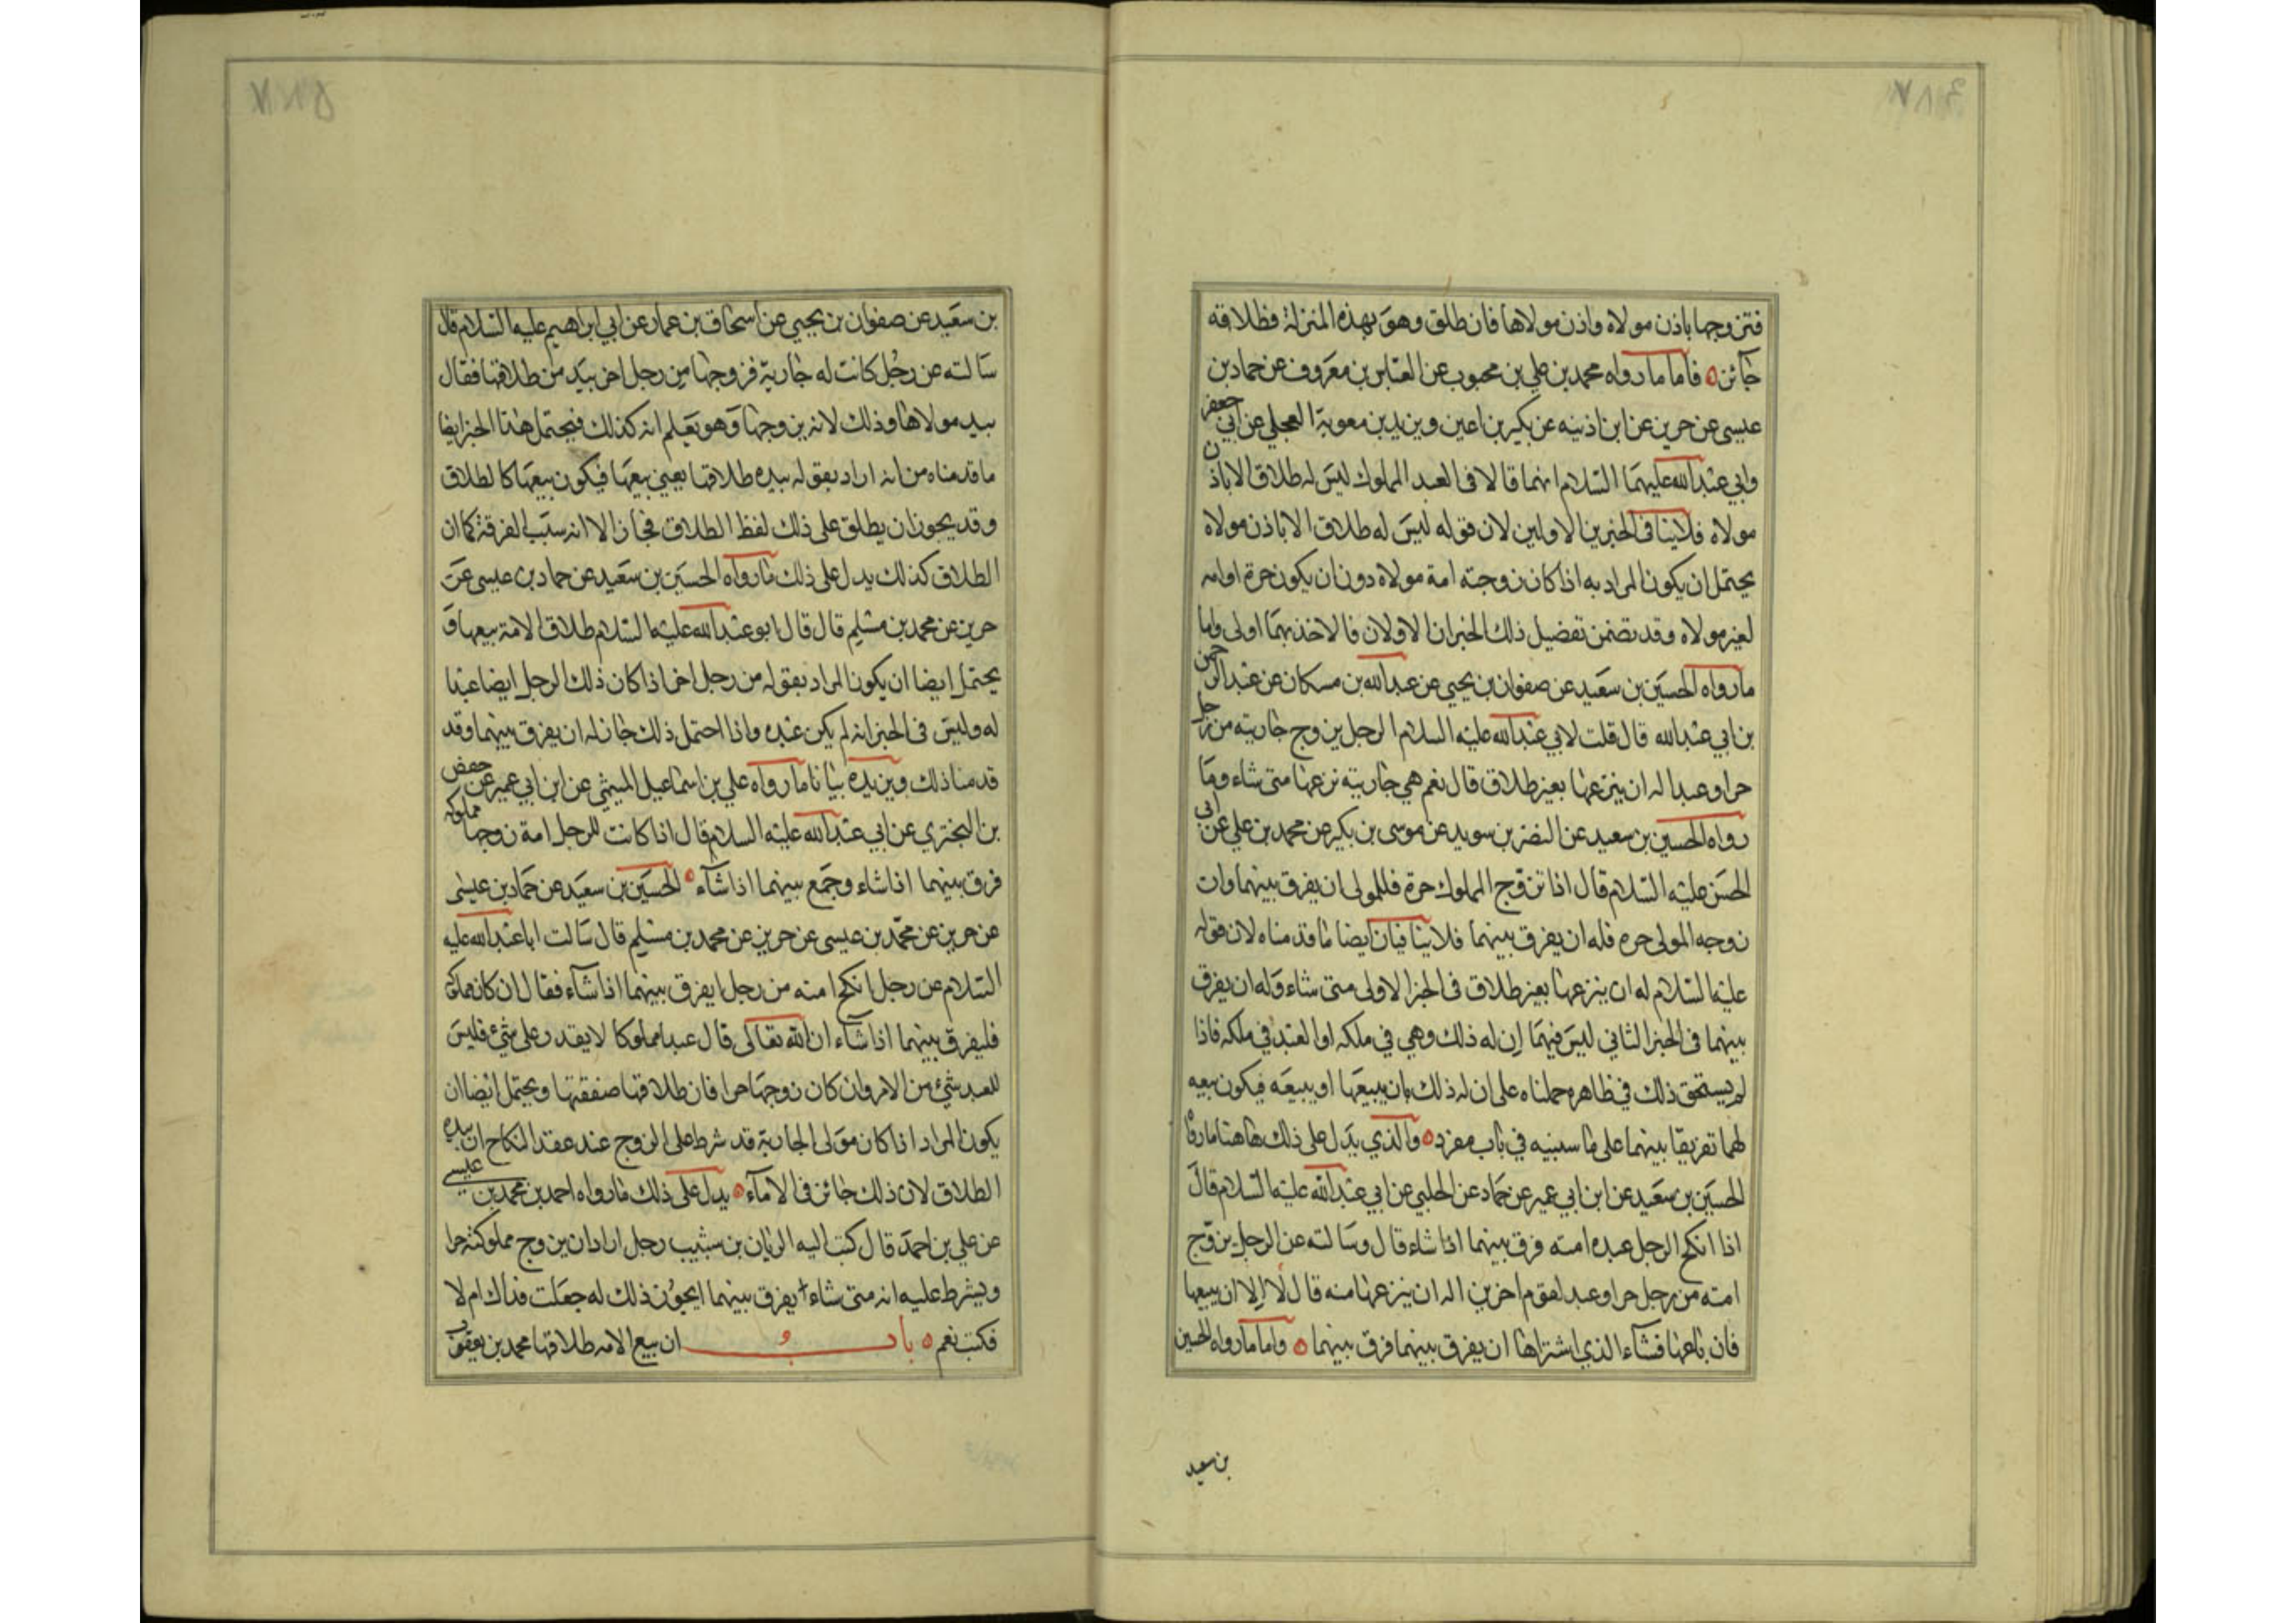 فتزوجها باذن مولاه واذن مولاها فان طلق وهو بهذه المنزلة فطلاقه
جائز فاما ما رواه محمد بن علي بن محبوب عن العباس بن معروف عن حماد بن
عيسى عن حريز عن ابن اذنيه عن بكير بن اعين وبريد بن معوية العجلي عن ابي جعفر
وابي عبد الله عليهما السلام انهما قالا في العبد المملوك ليس له طلاق الا باذن
مولاه فلاينا في الخبرين الاولين لان قوله ليس له طلاق الا باذن مولاه
يحتمل ان يكون المراد به اذا كان زوجته امة مولاه دون ان يكون حرة او امه
لغير مولاه وقد تضمن تفصيل ذلك الخبران الاولان فالاخذ بهما اولى واما
ما رواه الحسين بن سعيد عن صفوان بن يحيى عن عبد الله بن مسكان عن عبد الرحمن
بن ابي عبد الله قال قلت لابي عبد الله عليه السلام الرجل يزوج جاريته من رجل
حر او عبد اله ان ينزعها بغير طلاق قال نعم هي جاريته نزعها متى شاء وما
رواه الحسين بن سعيد عن النضر بن سويد عن موسى بن بكير عن محمد بن علي عن ابي
الحسن عليه السلام قال اذا تزوج المملوك حرة فللمولى ان يفرق بينهما وان
زوجه المولى حره فله ان يفرق بينهما فلاينا فيان ايضا ما قدمناه لان قوله
عليه السلام له ان ينزعها بغير طلاق في الخبر الاولى متى شاء وله ان يفرق
بينهما في الخبر الثاني ليس فيهما ان له ذلك وهي في ملكه او العبد في ملكه فاذا
لم يستحق ذلك في ظاهره حملناه على ان له ذلك بان يبيعها او يبيعه فيكون بيعه
لهما تفريقا بينهما على ما سبنيه في باب مفرد والذي يدل على ذلك هاهنا ما رواه
الحسين بن سعيد عن ابن ابي عمير عن حماد عن الحلبي عن ابي عبد الله عليه السلام قال
اذا انكح الرجل عبده امته فرق بينهما اذا شاء قال وسالته عن الرجل يزوج
امته من رجل حر او عبد لقوم اخرين اله ان ينزعها منه قال لا الا ان يبيعها
فان باعها فشاء الذي اشتراها ان يفرق بينهما فرق بينهما واما ما رواه الحسين
بن سعيد
بن سعيد عن صفوان بن يحيى عن اسحاق بن عمار عن ابي ابراهيم عليه السلام قال
سالته عن رجل كانت له جارية فزوجها من رجل اخر بيد من طلاقها فقال
بيد مولاها وذلك لانه يزوجها وهو يعلم انه كذلك فيحتمل هذا الخبر ايضا
ما قدمناه من انه اراد بقوله بيده طلاقها يعني بيعها فيكون بيعها كالطلاق
وقد يجوز ان يطلق على ذلك لفظ الطلاق مجازا لا انه سبب الفرقة كما ان
الطلاق كذلك يدل على ذلك ما رواه الحسين بن سعيد عن حماد بن عيسى عن
حريز عن محمد بن مسلم قال قال ابو عبد الله عليه السلام طلاق الامة بيعها و
يحتمل ايضا ان يكون المراد بقوله من رجل اخر اذا كان ذلك الرجل ايضا عبدا
له وليس في الخبر انه لم يكن عبده واذا احتمل ذلك جاز له ان يفرق بينهما وقد
قدمنا ذلك ويزيده بيانا ما رواه علي بن اسماعيل الميثمي عن ابن ابي عمير عن حفص
بن البختري عن ابي عبد الله عليه السلام قال اذا كانت للرجل امة زوجها مملوكه
فرق بينهما اذا شاء وجمع بينهما اذا شاء الحسين بن سعيد عن حماد بن عيسى
عن حريز عن محمد بن عيسى عن حريز عن محمد بن مسلم قال سالت ابا عبد الله عليه
السلام عن رجل انكح امته من رجل ايفرق بينهما اذا شاء فقال ان كان مملوكه
فليفرق بينهما اذا شاء ان الله تعالى قال عبدا مملوكا لا يقدر على شيء فليس
للعبد شيء من الامر وان كان زوجها حرا فان طلاقها صفقتها ويحتمل ايضا ان
يكون المراد اذا كان مولى الجارية قد شرط على الزوج عند عقد النكاح ان بيده
الطلاق لان ذلك جائز في الاماء يدل على ذلك ما رواه احمد بن محمد بن عيسى
عن علي بن احمد قال كتب اليه الريان بن شبيب رجل اراد ان يزوج مملوكته حرا
ويشرط عليه انه متى شاء يفرق بينهما ايجوز ذلك له جعلت فداك ام لا
فكتب نعم باب ان بيع الامه طلاقها محمد بن يعقوب